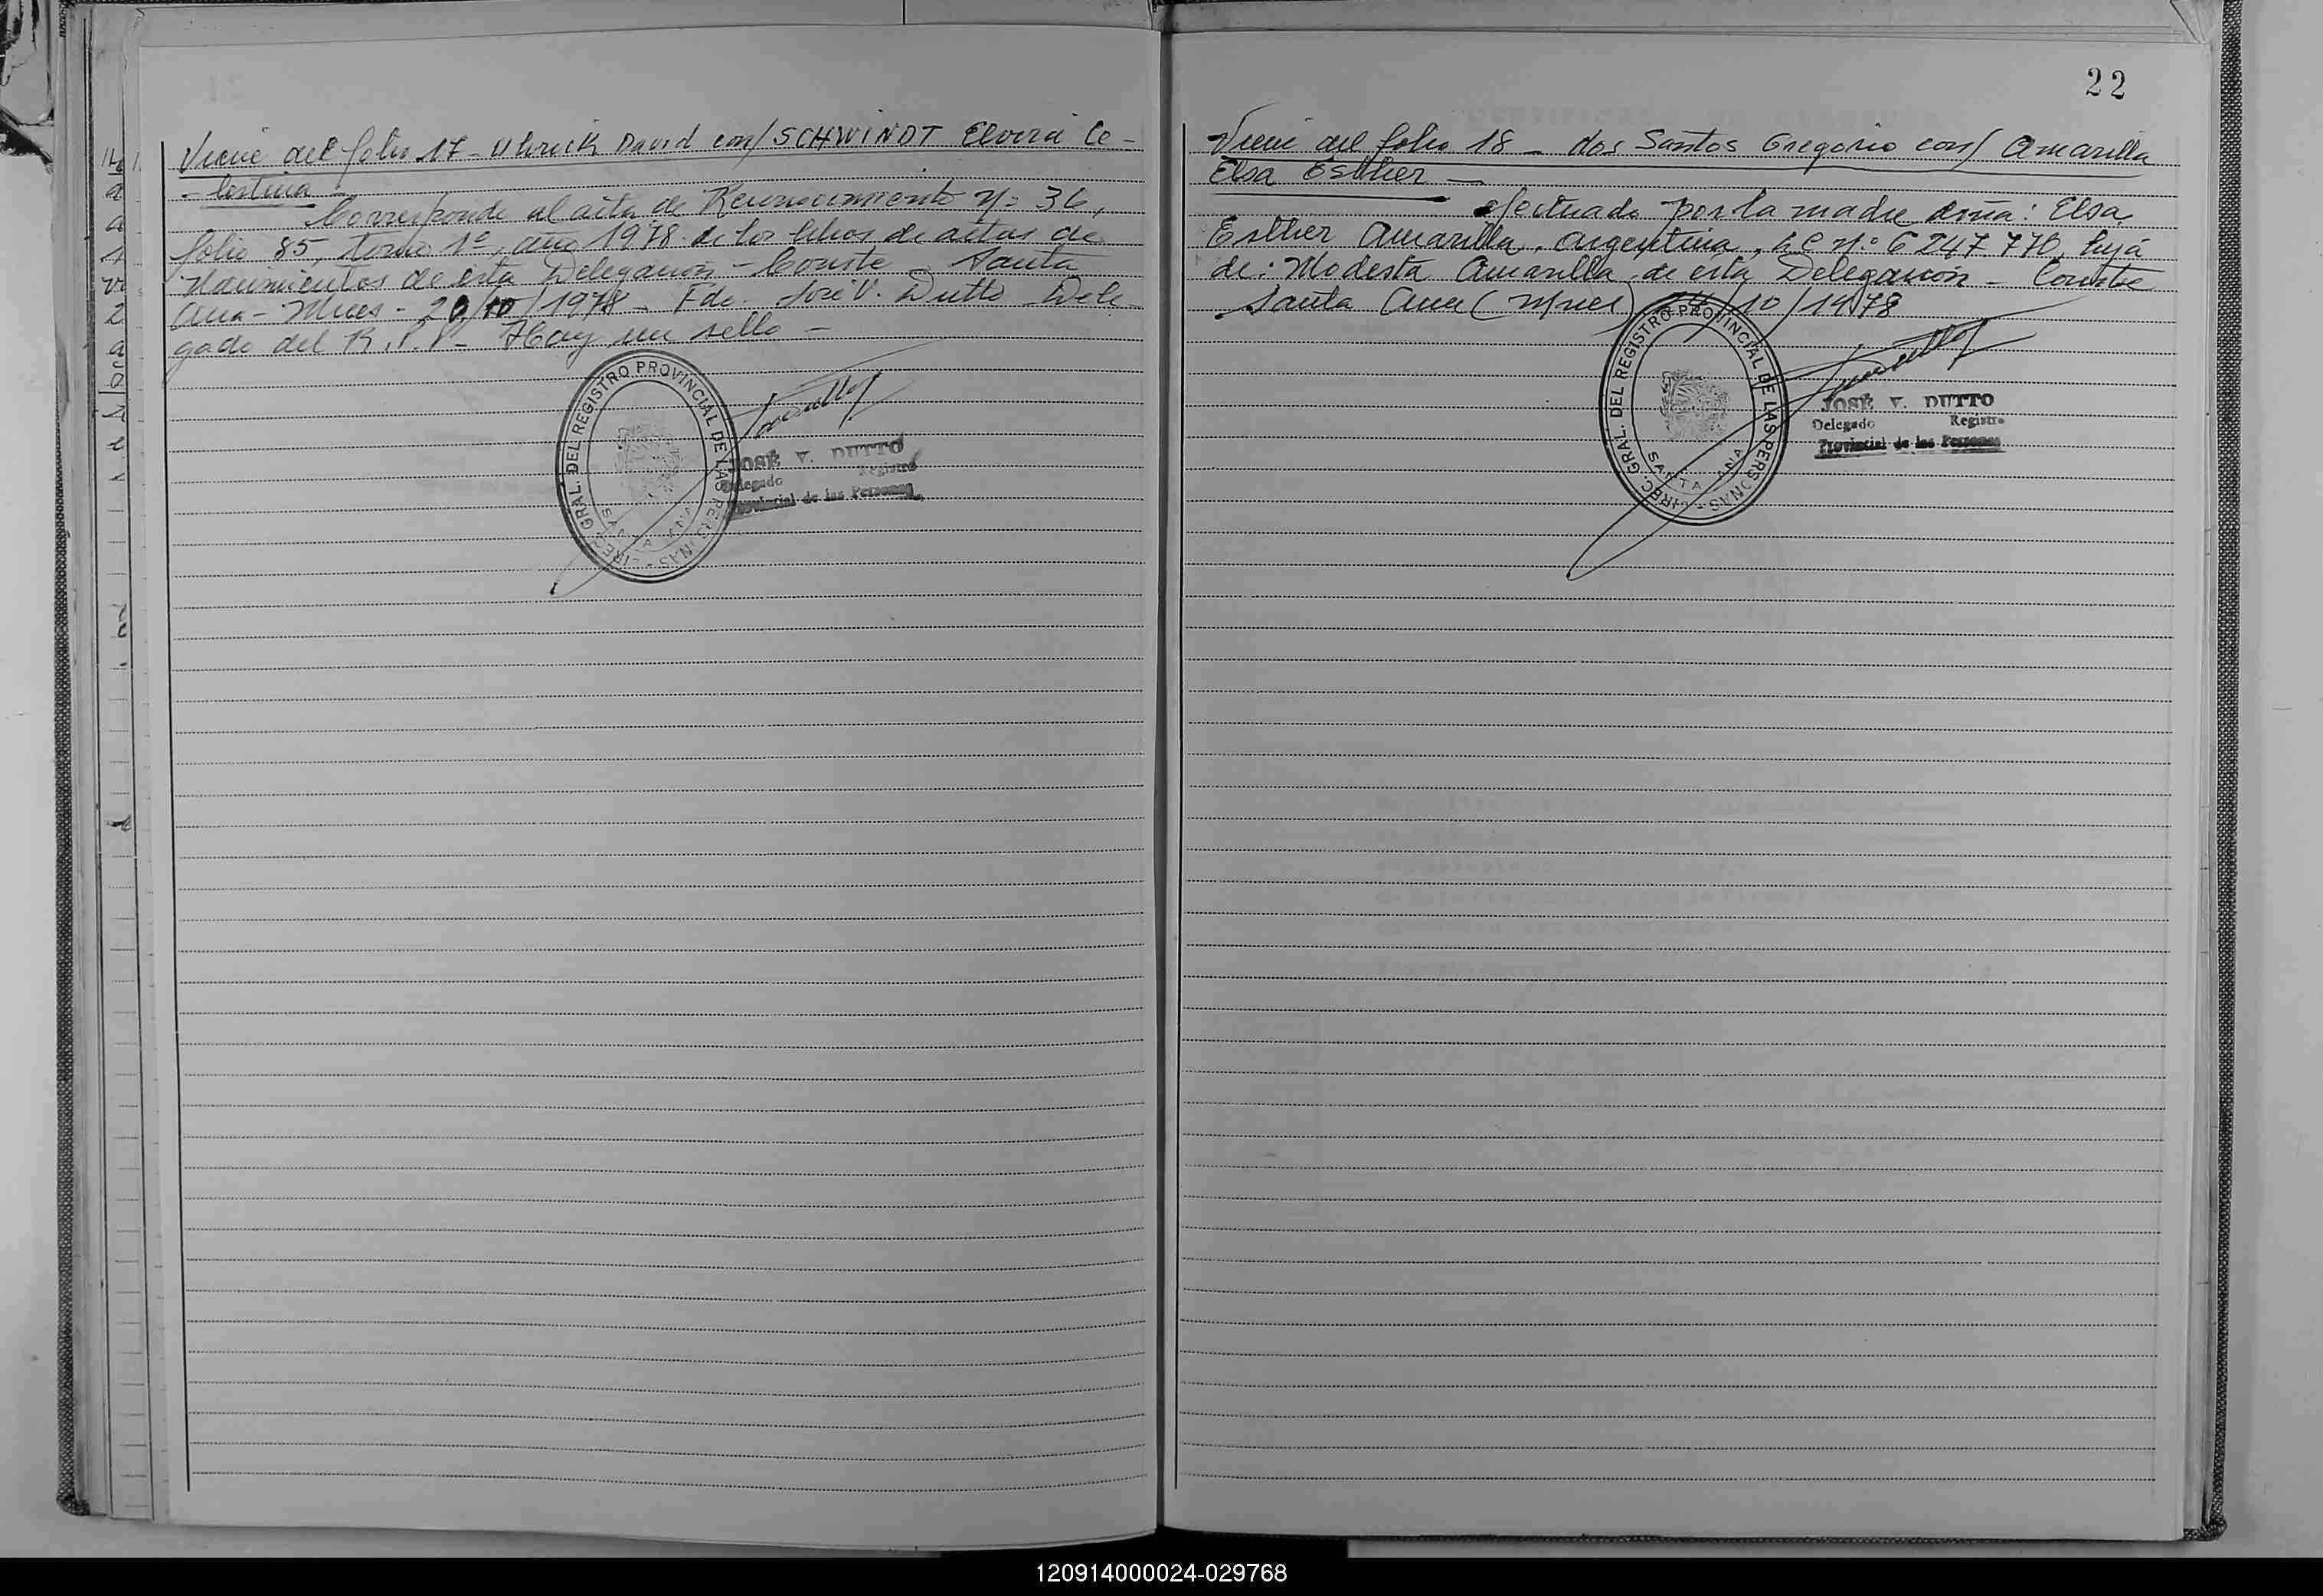 Viene del folio 17 - Ulrich David con/ SCHWINDT Elvira Ce-
- lestina -
Corresponde al acta de Reconocimiento Nº 36,
folio 85, tomo 1º, año 1978 de los libros de actas de
Nacimientos de esta Delegación - Conste - Santa
Ana - Mnes - 20/10/1978 - Fdo. José V. Dutto Dele-
gado del R.P.P. - Hay un sello -
DIREC. GRAL. DEL REGISTRO PROVINCIAL DE LAS PERSONAS -
SANTA ANA
JOSÉ V. DUTTO
Delegado Registro
Provincial de las Personas
22
Viene del folio 18 - dos Santos Gregorio con/ Amarilla
Elsa Esther -
efectuado por la madre doña: Elsa
Esther Amarilla, argentina, L.C. Nº 6 247 770, hija
de: Modesta Amarilla, de esta Delegación - Conste
Santa Ana (Mnes) 24/10/1978
DIREC. GRAL. DEL REGISTRO PROVINCIAL DE LAS PERSONAS -
SANTA ANA
JOSÉ V. DUTTO
Delegado Registro
Provincial de las Personas
120914000024-029768